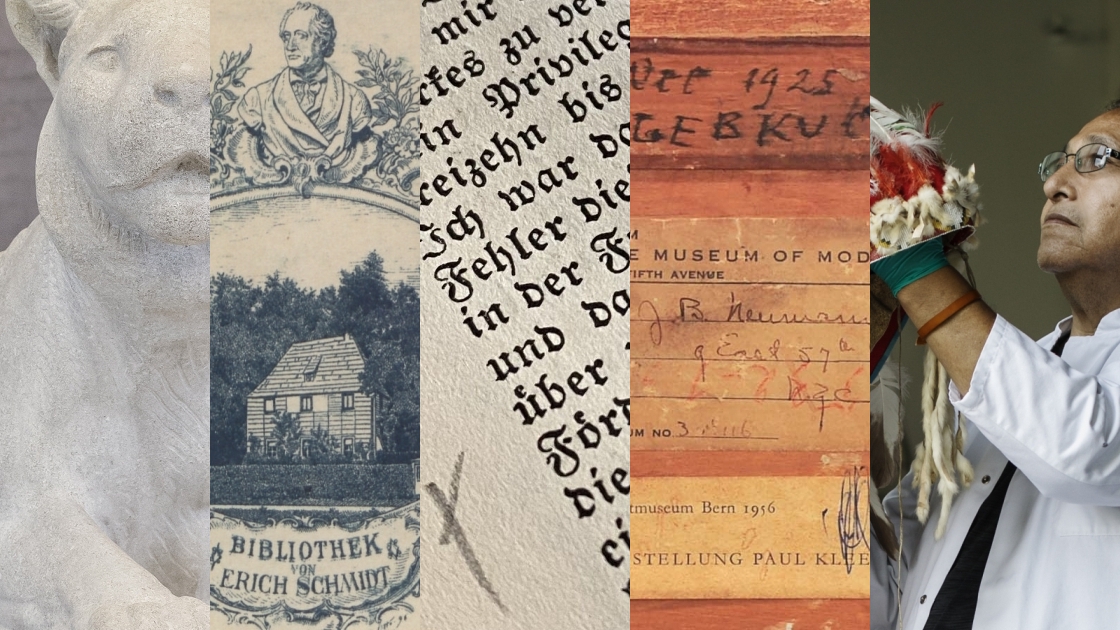 BIBLIOTHEK
VON
ERICH SCHMIDT
mir
zu
in Privileg
reizehn bis
Ich war
Fehler die
in der
und
über
Förd
die
1925
E MUSEUM OF MOD
IFTH AVENUE
J. B. Neumann
9 East 57th
NYC
UM NO.
tmuseum Bern 1956
STELLUNG PAUL KLEE